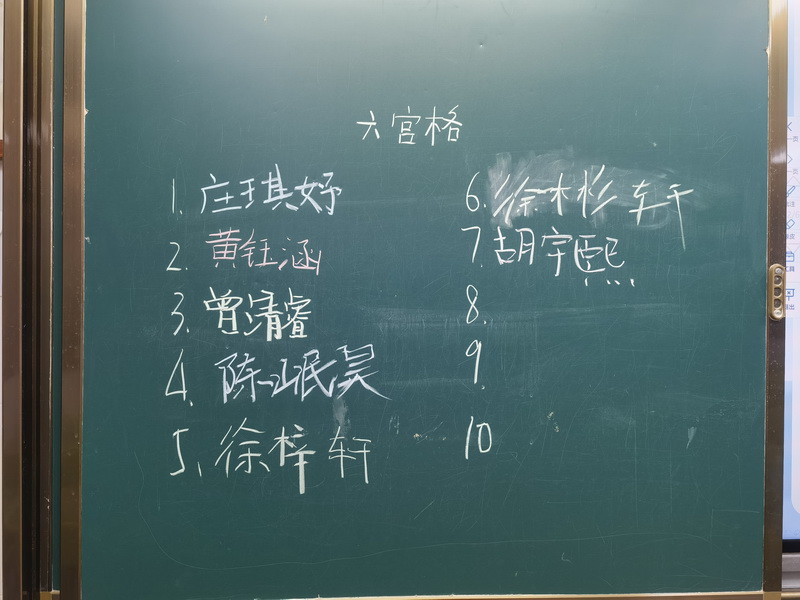 六宫格
1. 庄琪妤
2. 黄钰涵
3. 曾清睿
4. 陈一珉昊
5、徐梓轩
6. 徐木杉轩
7. 胡宇熙
8.
9.
10